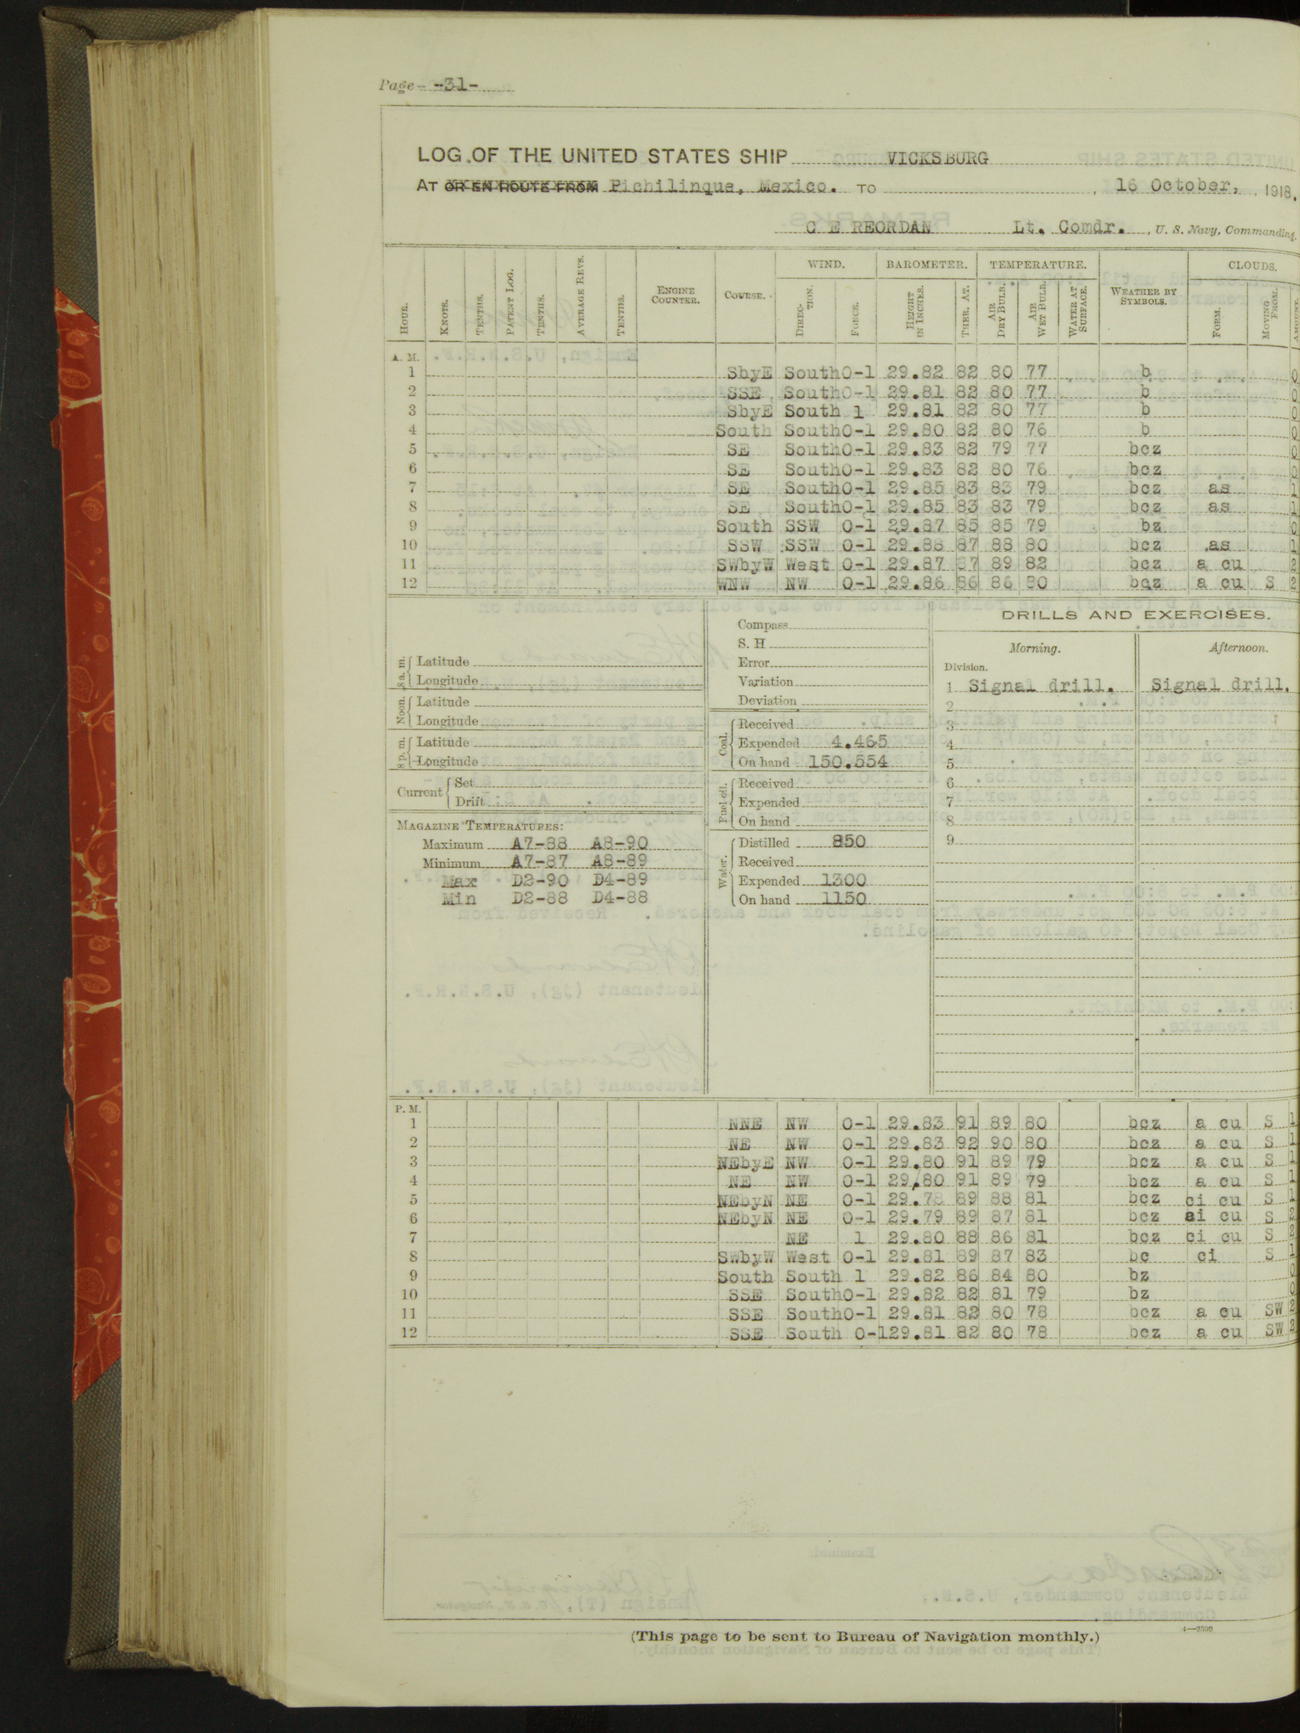 Page -31-
LOG OF THE UNITED STATES SHIP VICKSBURG
AT OR EN ROUTE FROM Pichilinque, Mexico. TO , 16 October, , 1918,
C E REORDAN Lt. Comdr. , U. S. Navy, Commanding.
WIND. BAROMETER. TEMPERATURE. CLOUDS.
HOUR. KNOTS. TENTHS. PATENT LOG. TENTHS. AVERAGE REVS. TENTHS. ENGINE COUNTER. COURSE. DIRECTION. FORCE. HEIGHT IN INCHES. THER. AT. AIR DRY BULB. AIR WET BULB. WATER AT SURFACE. WEATHER BY SYMBOLS. FORM. MOVING FROM. AMOUNT
A. M.
1 SbyE South 0-1 29.82 82 80 77 b 0
2 SSE South 0-1 29.81 82 80 77 b 0
3 SbyE South 1 29.81 82 80 77 b 0
4 South South 0-1 29.80 82 80 76 b 0
5 SE South 0-1 29.83 82 79 77 bcz 0
6 SE South 0-1 29.83 82 80 76 bcz 0
7 SE South 0-1 29.85 83 83 79 bcz as 1
8 SE South 0-1 29.85 83 83 79 bcz as 1
9 South SSW 0-1 29.87 85 85 79 bz 0
10 SSW SSW 0-1 29.88 87 88 80 bcz as 1
11 SWbyW West 0-1 29.87 87 89 82 bcz a cu 2
12 WNW NW 0-1 29.86 86 86 80 bqz a cu S 2
8 a. m. Latitude
Longitude
Noon. Latitude
Longitude
8 p. m. Latitude
Longitude
Current Set
Drift
MAGAZINE TEMPERATURES:
Maximum A7-88 A8-90
Minimum A7-87 A8-89
Max D2-90 D4-89
Min D2-88 D4-88
Compass
S. H
Error
Variation
Deviation
Coal. Received
Expended 4.465
On hand 150.554
Fuel oil. Received
Expended
On hand
Water. Distilled 850
Received
Expended 1300
On hand 1150
DRILLS AND EXERCISES.
Morning. Afternoon.
Division.
1 Signal drill. Signal drill.
2
3
4
5
6
7
8
9
P. M.
1 NNE NW 0-1 29.83 91 89 80 bcz a cu S 1
2 NE NW 0-1 29.83 92 90 80 bcz a cu S 1
3 NEbyE NW 0-1 29.80 91 89 79 bcz a cu S 1
4 NE NW 0-1 29,80 91 89 79 bcz a cu S 1
5 NEbyN NE 0-1 29.78 89 88 81 bcz ci cu S 1
6 NEbyN NE 0-1 29.79 89 87 81 bcz ci cu S 2
7 NE 1 29.80 88 86 81 bcz ci cu S 2
8 SwbyW West 0-1 29.81 89 87 83 bc ci S 1
9 South South 1 29.82 86 84 80 bz 0
10 SSE South 0-1 29.82 82 81 79 bz 0
11 SSE South 0-1 29.81 82 80 78 bcz a cu SW 2
12 SSE South 0-1 29.81 82 80 78 bcz a cu SW 2
(This page to be sent to Bureau of Navigation monthly.)